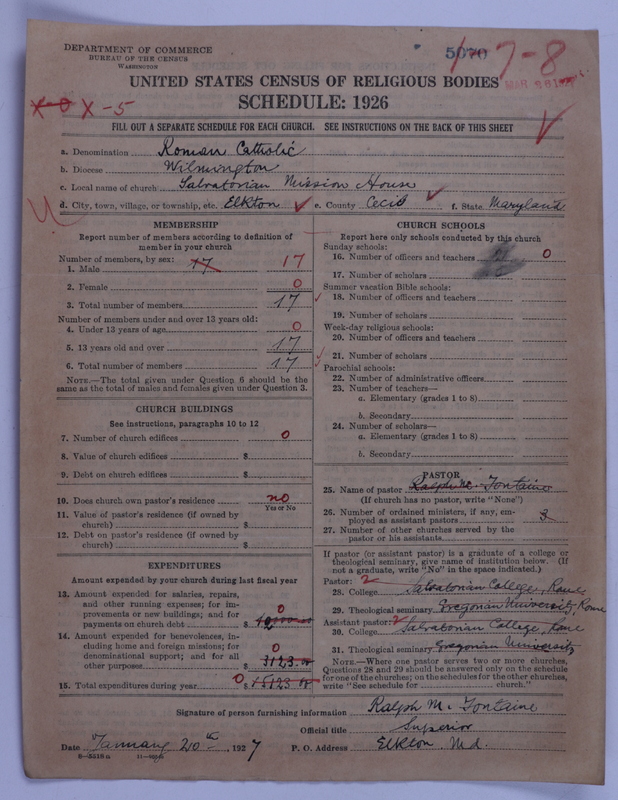 DEPARTMENT OF COMMERCE
BUREAU OF THE CENSUS
WASHINGTON
7-8
X-5
UNITED STATES CENSUS OF RELIGIOUS BODIES
SCHEDULE: 1926
FILL OUT A SEPARATE SCHEDULE FOR EACH CHURCH. SEE INSTRUCTIONS ON THE BACK OF THIS SHEET
a. Denomination Roman Catholic
b. Diocese Wilmington
c. Local name of church Salvatorian Mission House
d. City, town, village, or township, etc. Elkton e. County Cecil f. State Maryland
MEMBERSHIP
Report number of members according to definition of
member in your church
Number of members, by sex:
1. Male 17 17
2. Female 0
3. Total number of members 17
Number of members under and over 13 years old:
4. Under 13 years of age 0
5. 13 years old and over 17
6. Total number of members 17
NOTE.—The total given under Question 6 should be
the same as the total of males and females given under Question 3.
CHURCH BUILDINGS
See instructions, paragraphs 10 to 12
7. Number of church edifices 0
8. Value of church edifices $
9. Debt on church edifices $
10. Does church own pastor's residence no
Yes or No
11. Value of pastor's residence (if owned by
church) $
12. Debt on pastor's residence (if owned by
church) $
EXPENDITURES
Amount expended by your church during last fiscal year
13. Amount expended for salaries, repairs,
and other running expenses; for im-
provements or new buildings; and for
payments on church debt $ 0
14. Amount expended for benevolences, in-
cluding home and foreign missions; for
denominational support; and for all
other purposes 0 3123.00
15. Total expenditures during year 0 $ 15123.00
CHURCH SCHOOLS
Report here only schools conducted by this church
Sunday schools:
16. Number of officers and teachers 0
17. Number of scholars
Summer vacation Bible schools:
18. Number of officers and teachers
19. Number of scholars
Week-day religious schools:
20. Number of officers and teachers
21. Number of scholars
Parochial schools:
22. Number of administrative officers
23. Number of teachers—
a. Elementary (grades 1 to 8)
b. Secondary
24. Number of scholars—
a. Elementary (grades 1 to 8)
b. Secondary
PASTOR
25. Name of pastor Ralph M. Fontaine
(If church has no pastor, write "None")
26. Number of ordained ministers, if any, em-
ployed as assistant pastors 3
27. Number of other churches served by the
pastor or his assistants
If pastor (or assistant pastor) is a graduate of a college or
theological seminary, give name of institution below. (If
not a graduate, write "No" in the space indicated.)
Pastor: 2
28. College Salvatorian College, Rome
29. Theological seminary Gregorian University, Rome
Assistant pastor: 2
30. College Salvatorian College, Rome
31. Theological seminary Gregorian University
NOTE.—Where one pastor serves two or more churches,
Questions 28 and 29 should be answered only on the schedule
for one of the churches; on the schedules for the other churches,
write "See schedule for church."
Signature of person furnishing information Ralph M. Fontaine
Official title Superior
Date January 20th, 1927 P. O. Address Elkton, Md.